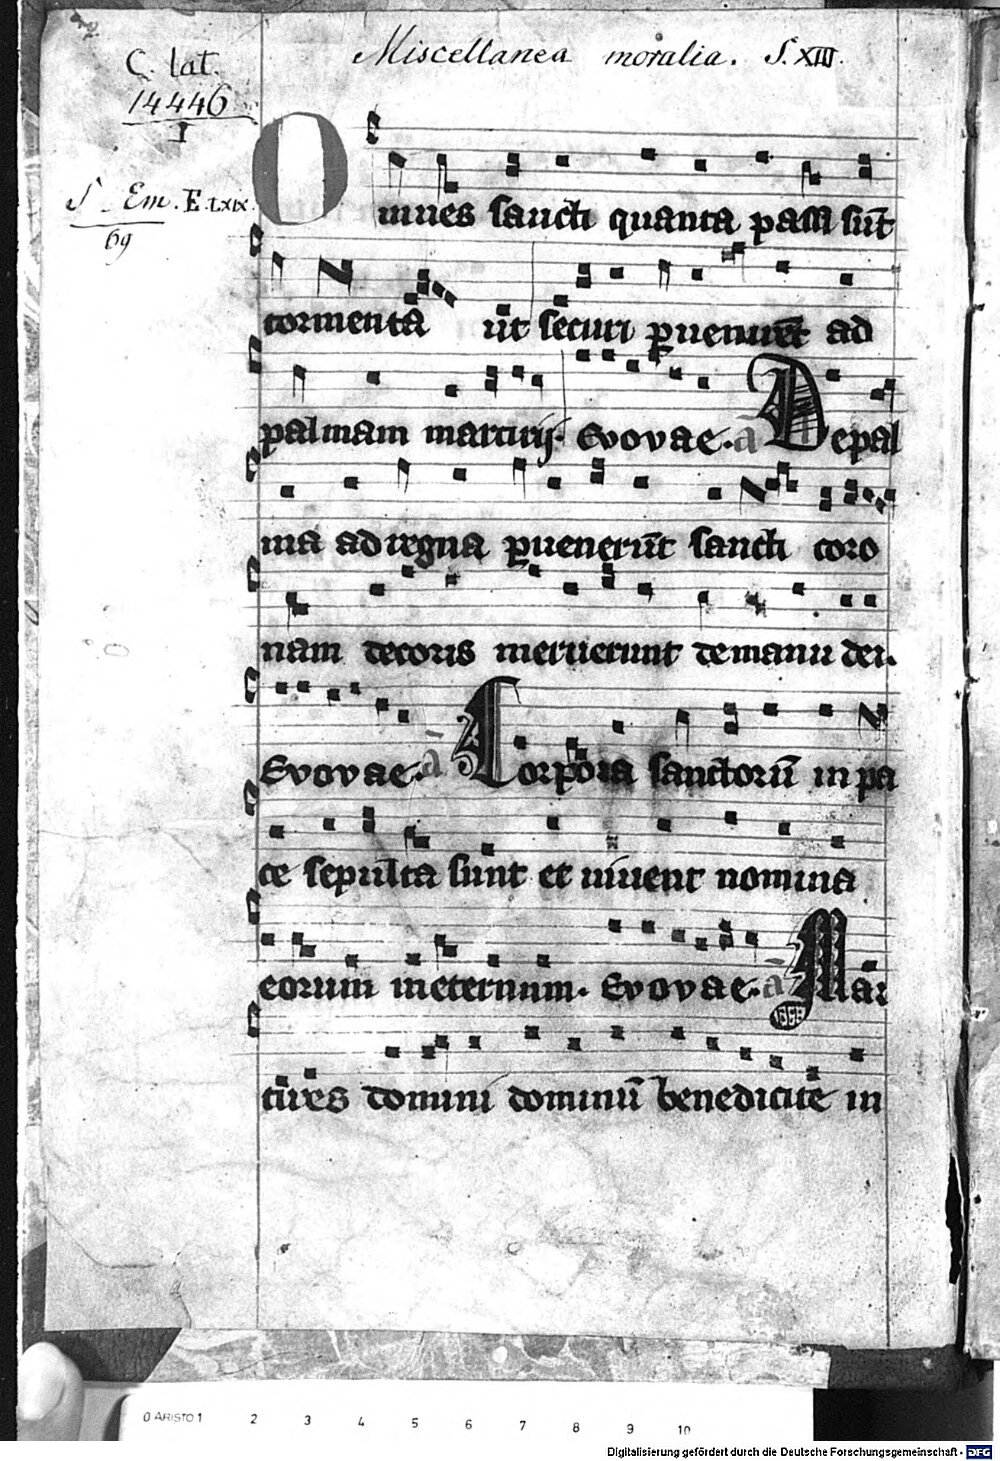 Miscellanea moralia. S. XIII.
C. lat.
14446
I
S. Em. E. LXIX.
69
Omnes sancti quanta passi sūt
tormenta ut securi ꝑuenirēt ad
palmam martirij. Evovae. a Depal
ma ad regna ꝑuenerūt sancti coro
nam decoris meruerunt de manu dei.
Evovae. a Corpora sanctorū in pa
ce sepulta sunt et uiuent nomina
eorum ineternum. Evovae. a Mar
tires domini dominū benedicite in
0 ARISTO 1 2 3 4 5 6 7 8 9 10
Digitalisierung gefördert durch die Deutsche Forschungsgemeinschaft - DFG